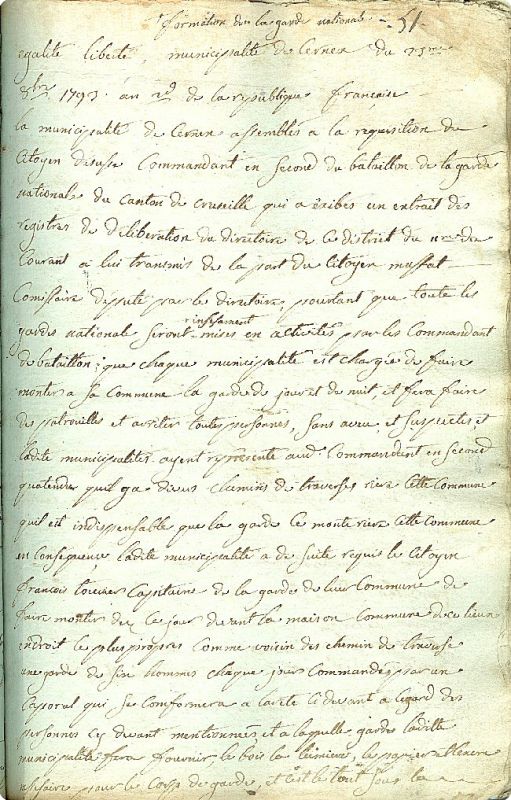 formation de la garde national 51
egalité liberté, municipalité de Cernex du 23me
8bre 1793. an 2d de la republique francaise
la municipalité de Cernex assemblés a la requisition du
Citoyen desusse Commandant en second du bataillon de la garde
nationale du Canton de Cruseille qui a exibés un extrait des
registres de déliberation du directoire de ce district du
Courant a lui transmis de la part du Citoyen mussat
Comissaire député par le directoire, pourtant que toute les
gardes national seront incessament mises en activités par les Commandant
de bataillon; que chaque municipalité est chargée de faire
monter a sa Commune la garde de jour et de nuit, et fera faire
des patrouilles et arriter toutes personnes, sans aveu, et suspectes et
ladite municipalités ayent représenté aud. Commandant en second
quatendu quil y a divers chemins de traverses riere cette Commune
quil est indispensable que la garde ce monte riere cette Commune
en consequence ladite municipalité a de suite requis le Citoyen
francois touvier Capitaine de la gardes de leur Commune de
faire monter dez ce jour devant la maison Commune de ce lieux
endroit le plus propres comme voisin des chemin de traverse
une garde de six hommes chaque jour Commandés par un
Caporal qui se conformera a larete ci devant a legard des
personnes cy devant mentionnées, et a laquelle gardes ladite
municipalité fera fournir le bois la lumiere, le papier et lencre
nessaire pour le Corps de garde, et c'est le tout sous la